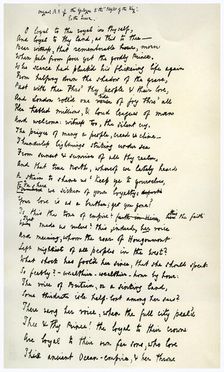 original M.S. of the Epilogue to the "Idylls of the King".
To the Queen.
O loyal to the royal in thyself,
And loyal to thy land, as this to thee —
Bear witness, that rememberable morn
When pale from fever yet the goodly Prince,
Who scarce had pluck'd his flickering life again
From halfway down the shadow of the grave,
Past with thee thro' thy people & their love,
And London roll'd one tide of joy thro' all
Her trebled millions, & loud leagues of man
And welcome! witness too, the silent cry,
The prayer of many a people, creed & clime —
Thunderless lightnings striking under sea
From sunset & sunrise of all thy realm,
And that true North, whereof we lately heard
A strain to shame us! "Keep ye to yourselves,
we sicken of your loyalty
Your love is as a burthen: get you gone!"
Is this the tone of empire? the faith
That made us rulers? this indeed, her voice
And meaning, whom the roar of Hougoumont
Left mightiest of all peoples in the West?
What shock has fool'd her since, that she should speak
So feebly? — wealthier — wealthier — hour by hour.
The voice of Britain, or a sinking land,
Some third-rate isle half-lost among her seas?
There rang her voice, when the full city peal'd
Thee & thy Prince! the loyal to their crown
Are loyal to their own far sons, who love
ancient Ocean-empire, & her throne